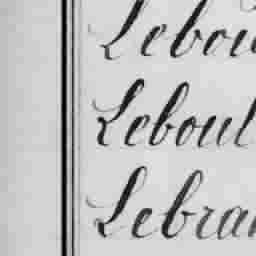 Lebou
Leboul
Lebra